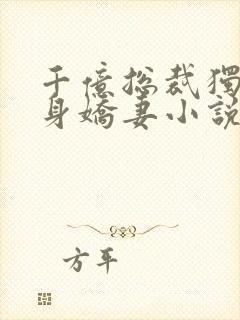 千億總裁獨
身嬌妻小說
方平